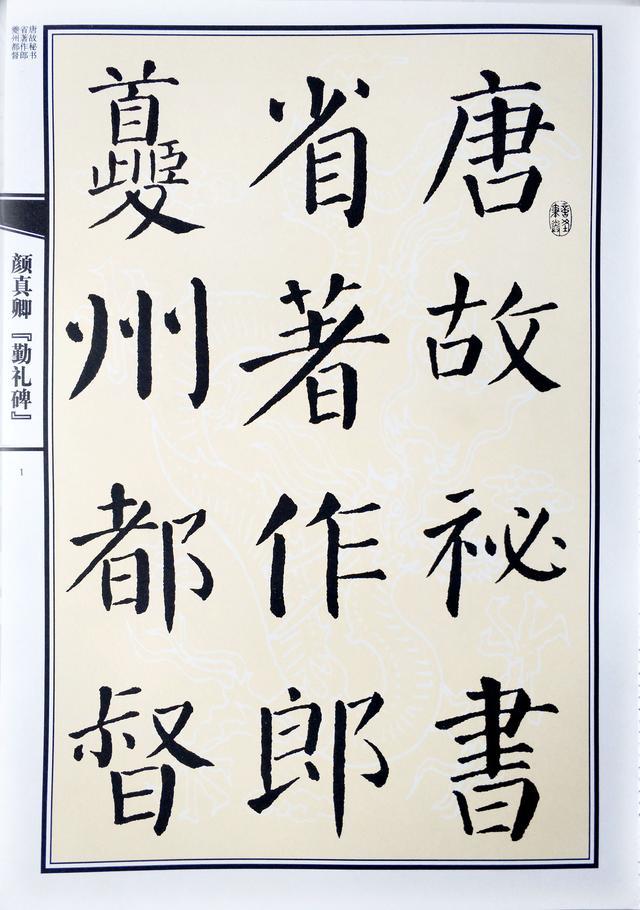 唐故祕書
省著作郎
夔州都督
唐故秘书
省著作郎
夔州都督
颜真卿『勤礼碑』
1